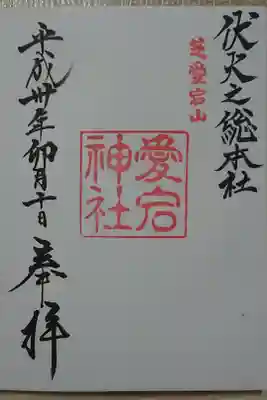 伏火之総本社
芝愛宕山
愛宕
神社
奉拝
平成卅年卯月十日